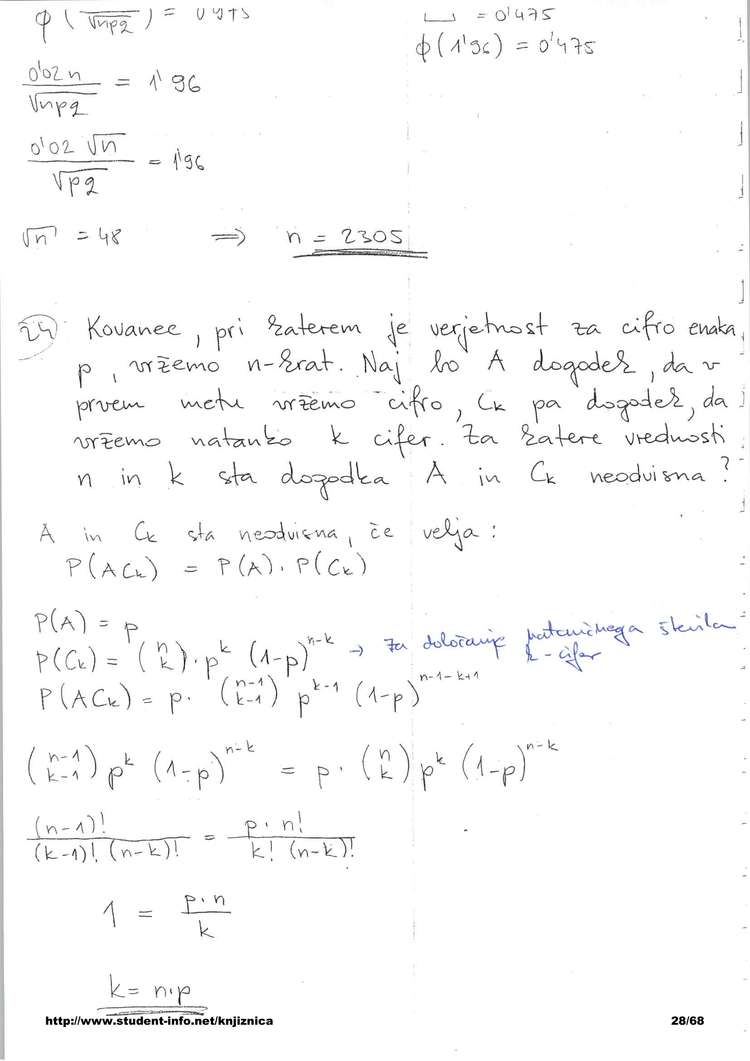 φ(√npq) = 0'475
⎵ = 0'475
φ(1'96) = 0'475
0'02n / √npq = 1'96
0'02 √n / √pq = 1'96
√n = 48 ⟹ n = 2305
24 Kovanec, pri katerem je verjetnost za cifro enaka
p, vržemo n-krat. Naj bo A dogodek, da v
prvem metu vržemo cifro, Ck pa dogodek, da
vržemo natanko k cifer. Za katere vrednosti
n in k sta dogodka A in Ck neodvisna?
A in Ck sta neodvisna, če velja:
P(ACk) = P(A). P(Ck)
P(A) = p
P(Ck) = (n k). p^k (1-p)^(n-k) → za določanje natančnega števila
k-cifer
P(ACk) = p. (n-1 k-1) p^(k-1) (1-p)^(n-1-k+1)
(n-1 k-1) p^k (1-p)^(n-k) = p. (n k) p^k (1-p)^(n-k)
(n-1)! / (k-1)! (n-k)! = p. n! / k! (n-k)!
1 = p.n / k
k = n.p
http://www.student-info.net/knjiznica 28/68